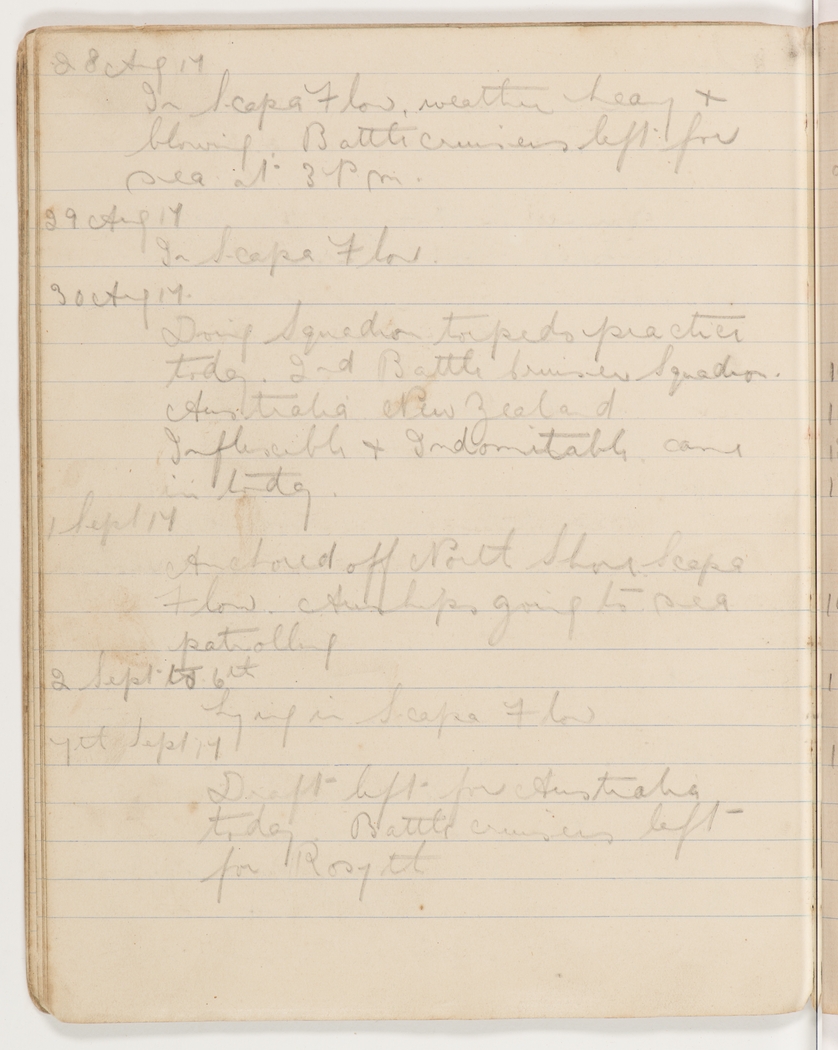 28 Aug 17
In Scapa Flow, weather heavy +
blowing. Battle cruisers left for
sea at 3 Pm.
29 Aug 17
In Scapa Flow.
30 Aug 17.
Doing Squadron torpedo practice
today. 2nd Battle Cruiser Squadron.
Australia New Zealand
Inflexible + Indomitable came
in today.
1 Sept 17
Anchored off North Shore Scapa
Flow. Airships going to sea
patrolling
2 Sept to 6th
Lying in Scapa Flow
7th Sept 17
Draft left for Australia
today. Battle cruisers left
for Rosyth